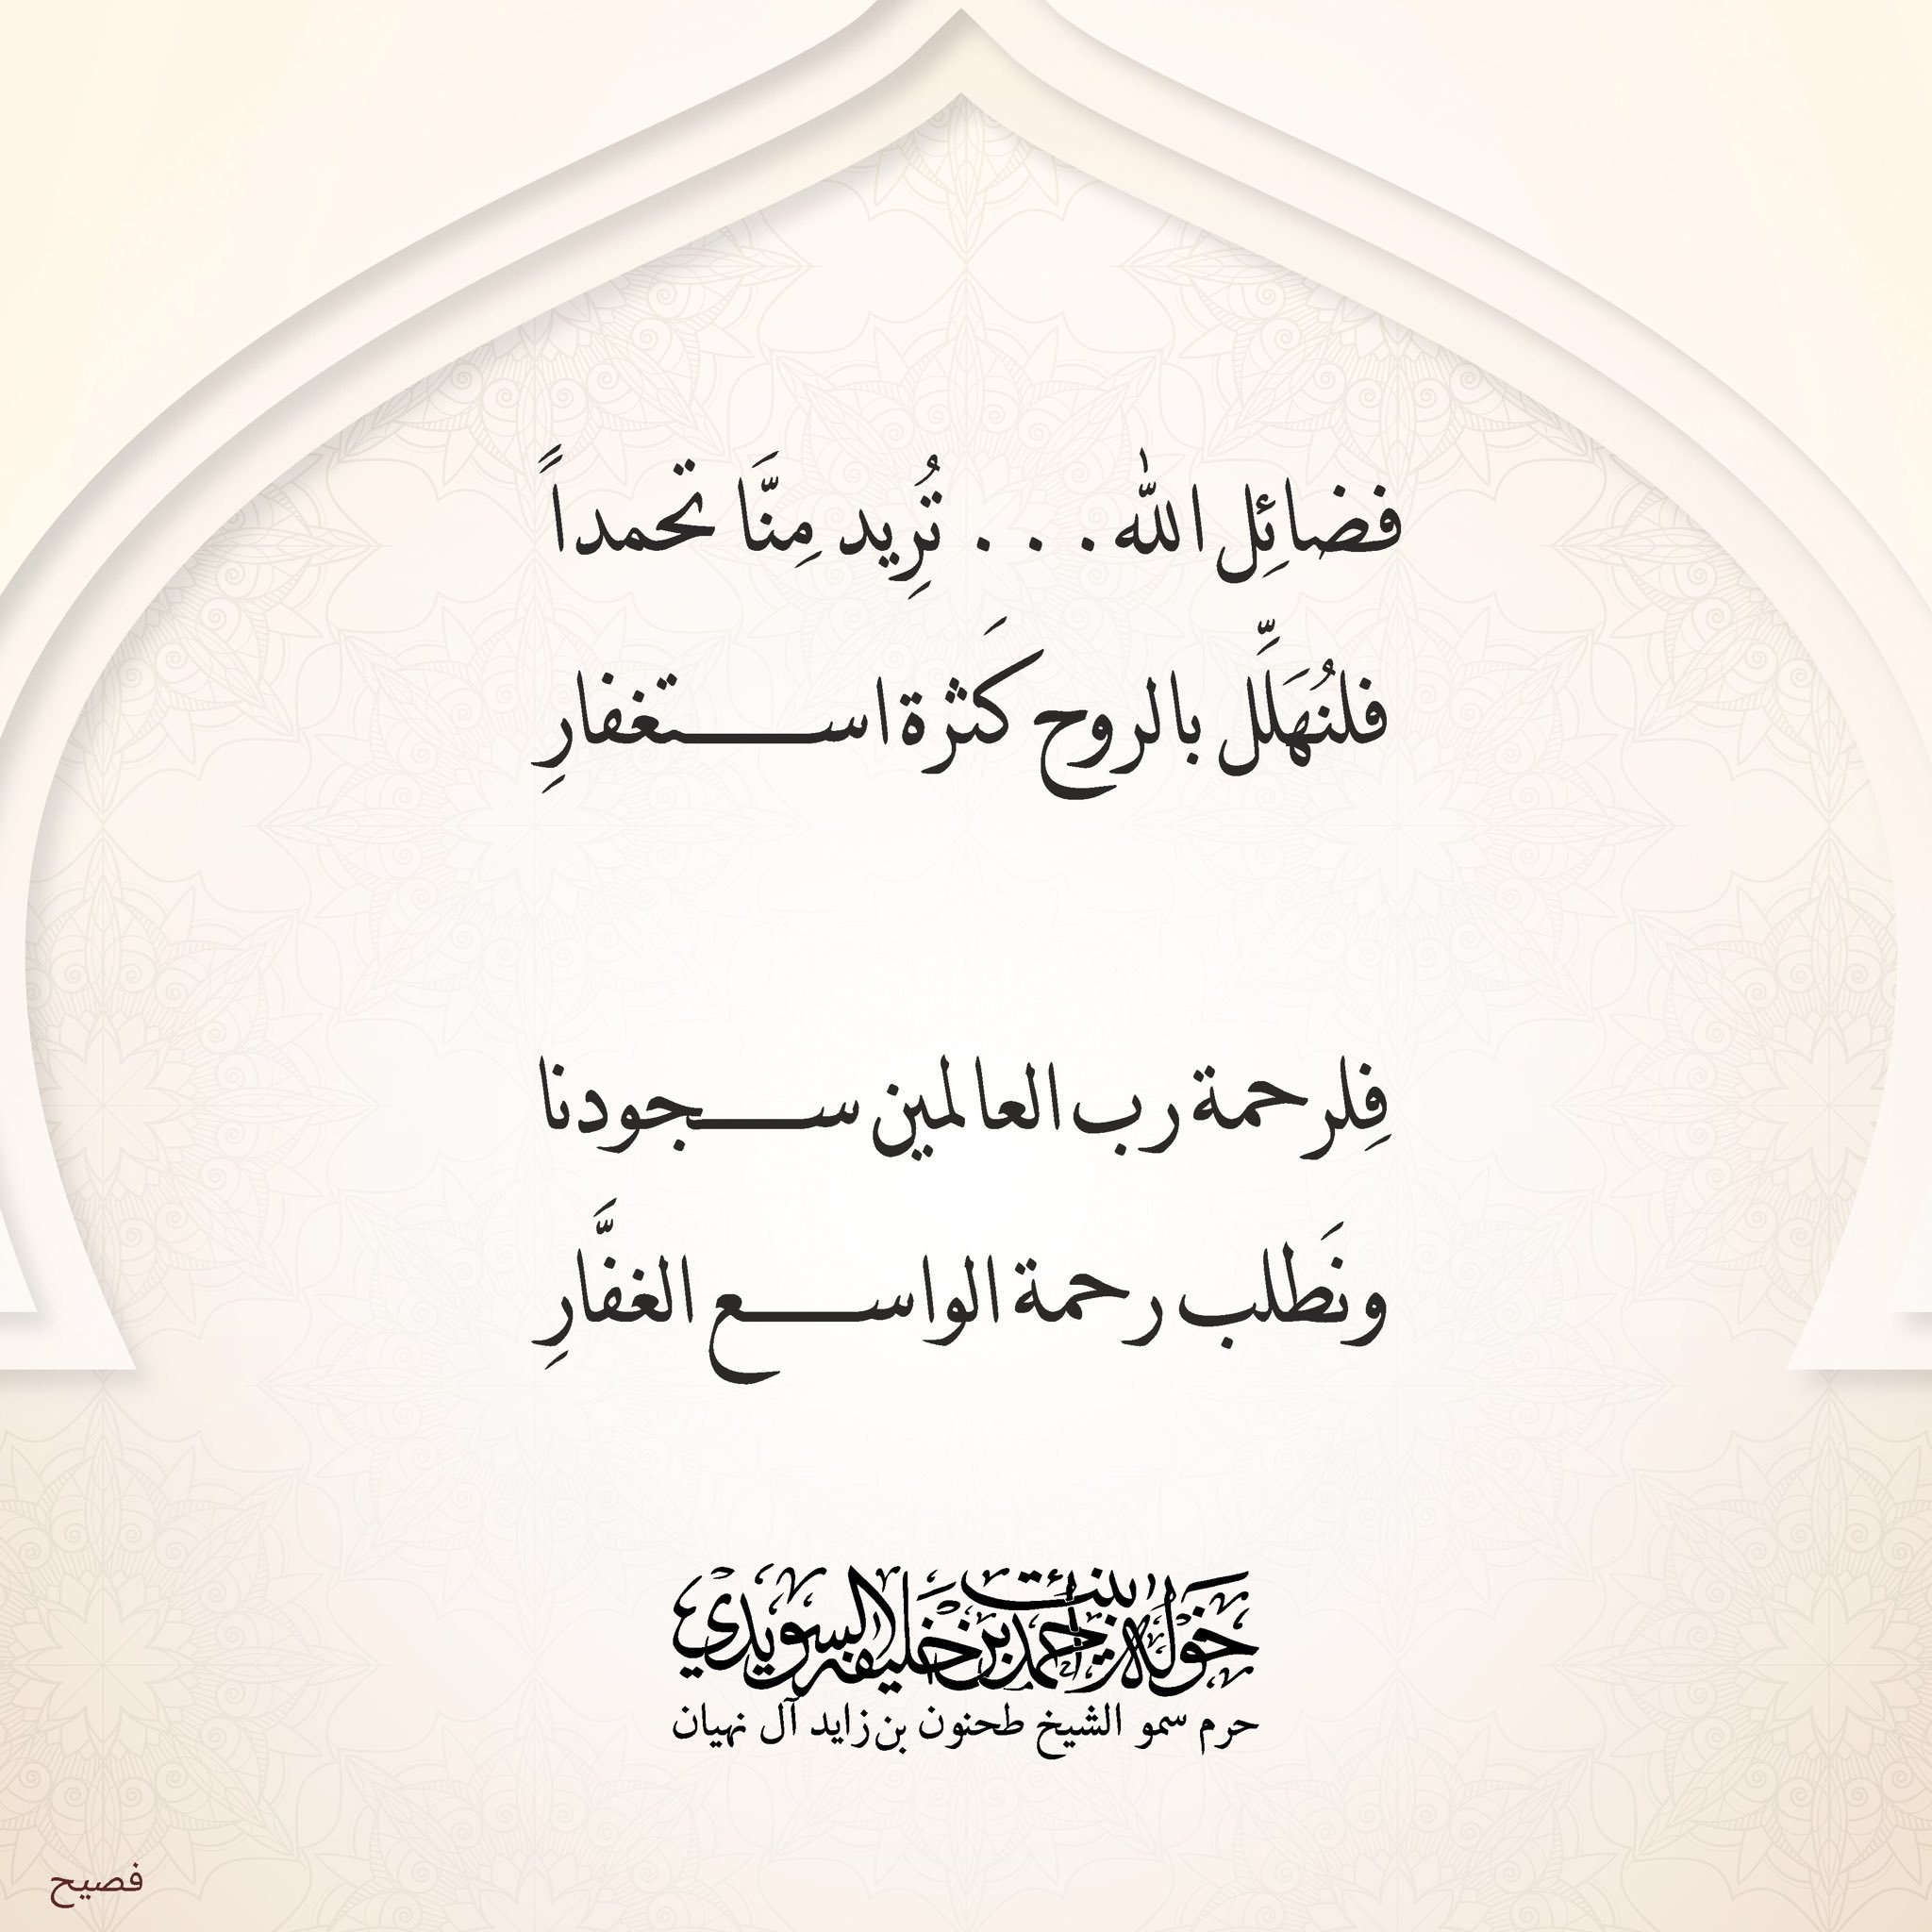 فضائِل الله... تُرِيد مِنَّا تحمداً
فلنُهَلِّل بالروح كَثرة استغفارِ
فِلرحمة رب العالمين سجودنا
ونَطلب رحمة الواسع الغفَّارِ
خولة بنت احمد بن خليفة السويدي
حرم سمو الشيخ طحنون بن زايد آل نهيان
فصيح